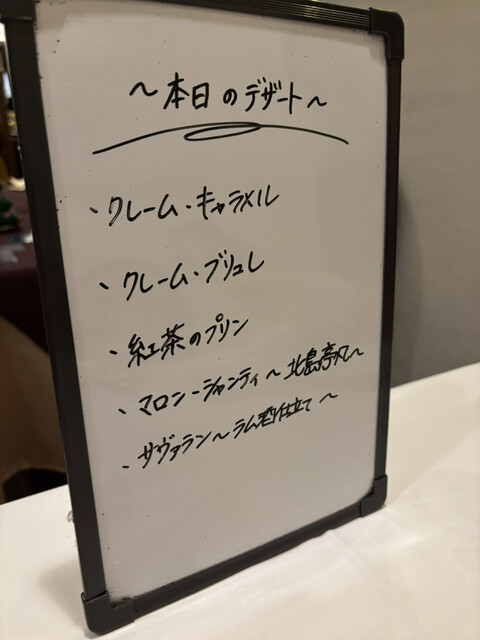 ～本日のデザート～
・クレーム・キャラメル
・クレーム・ブリュレ
・紅茶のプリン
・マロン-シャンティ～北島亭風～
・サヴァラン～ラム酒仕立て～